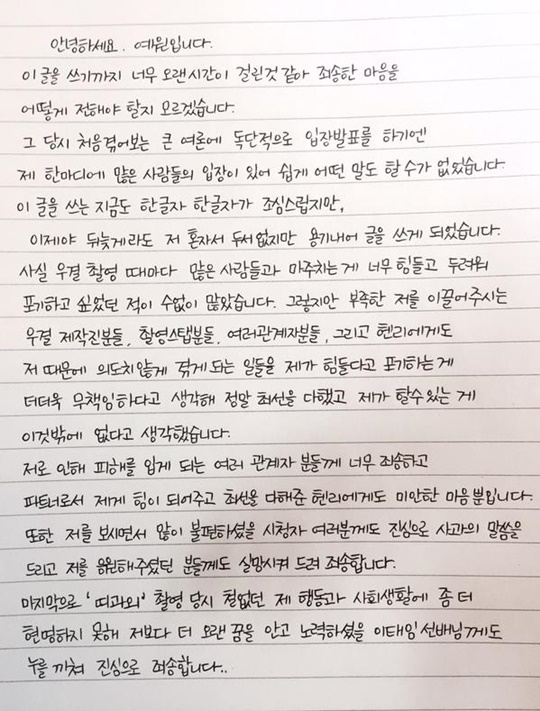 안녕하세요. 예원입니다.
이 글을 쓰기까지 너무 오랜시간이 걸린것 같아 죄송한 마음을
어떻게 전해야 할지 모르겠습니다.
그 당시 처음겪어보는 큰 여론에 독단적으로 입장발표를 하기엔
제 한마디에 많은 사람들의 입장이 있어 쉽게 어떤 말도 할 수가 없었습니다.
이 글을 쓰는 지금도 한글자 한글자가 조심스럽지만,
이제야 뒤늦게라도 저 혼자서 두서없지만 용기내어 글을 쓰게 되었습니다.
사실 우결 촬영 때마다 많은 사람들과 마주치는게 너무 힘들고 두려워
포기하고 싶었던 적이 수없이 많았습니다. 그렇지만 부족한 저를 이끌어주시는
우결 제작진분들, 촬영스탭분들, 여러관계자분들, 그리고 헨리에게도
저 때문에 의도치않게 겪게 되는 일들을 제가 힘들다고 포기하는게
더더욱 무책임하다고 생각해 정말 최선을 다했고 제가 할수있는 게
이것밖에 없다고 생각했습니다.
저로 인해 피해를 입게 되는 여러 관계자 분들께 너무 죄송하고
파트너로서 제게 힘이 되어주고 최선을 다해준 헨리에게도 미안한 마음 뿐입니다.
또한 저를 보시면서 많이 불편하셨을 시청자 여러분께도 진심으로 사과의 말씀을
드리고 저를 응원해주셨던 분들께도 실망시켜 드려 죄송합니다.
마지막으로 '띠과외' 촬영 당시 철없던 제 행동과 사회생활에 좀 더
현명하지 못해 저보다 더 오랜 꿈을 안고 노력하셨을 이태임 선배님께도
누를 끼쳐 진심으로 죄송합니다..